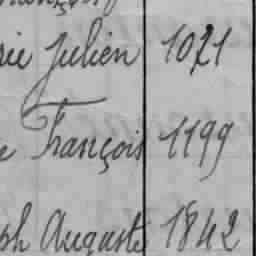 rie Julien 1021
e François 1199
ph Auguste 1842